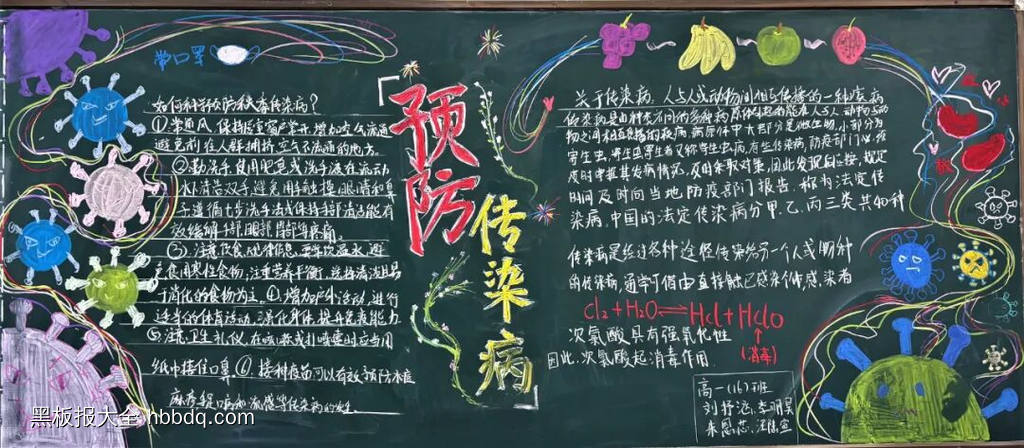 带口罩
如何科学预防秋冬季传染病?
①常通风,保持居室窗户常开,增加空气流通
避免到在人群拥挤,空气不流通的地方。
②勤洗手,食用肥皂或洗手液在流动
水清洁双手,避免用手触摸,眼睛和鼻
子遵循七步洗手法或保持手部清洁能有
效缓解
③,注意饮食
食用 性食物,注重营养平衡,选择清淡且易
于消化的食物为主。④,增加户外活动,进行
适当的体育活动,强化身体,提升 能力
⑤,注意卫生礼仪,在咳嗽或打喷嚏时应当用
纸巾捂住口鼻 ⑥,接种疫苗可以有效预防水痘
麻疹 和流感等传染病的发生
预防
传染病
关于传染病,人与人或动物间相互传播的一种疾病
传染病是由种类不同的各种病原体引起的能在人与人、动物与动
物之间相互传播的疾病,病原体中大部分是微生物,小部分为
寄生虫,寄生虫寄生者又称寄生虫病,有些传染病,防疫部门必须
及时掌握其发病情况,及时采取对策,因此发现后应按规定
时间及时向当地防疫部门报告,称为法定传
染病,中国的法定传染病分甲,乙,丙三类共40种
传染病是经过各种途径传染给另一个人或
的传染病,通常可借由直接触已感染个体,感染者
Cl₂+H₂O⇌Hcl+Hclo
↑
次氯酸具有强氧化性
(消毒)
因此,次氯酸起消毒作用
高一(16)班
黑板报大全 hbbdq.com